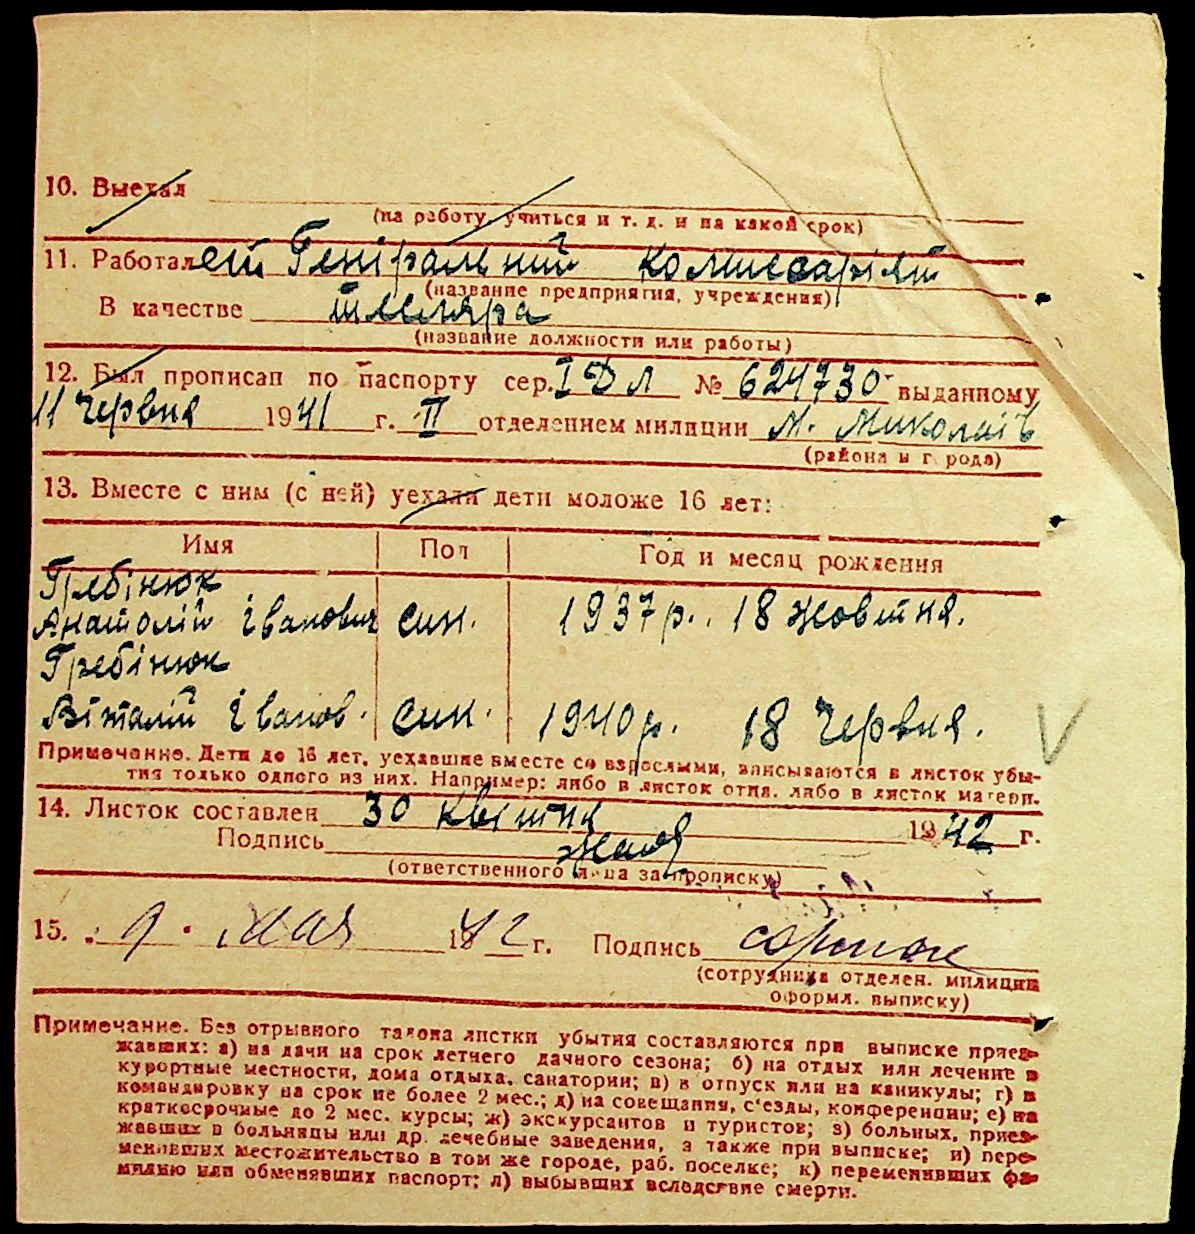 10. Выехал
(на работу, учиться и т. д. и на какой срок)
11. Работает Генеральний комисаріят
(название предприятия, учреждения)
В качестве тесляра
(название должности или работы)
12. Был прописан по паспорту сер. І ДЛ № 624730 выданному
11 Червня 1941 г. II отделением милиции М. Миколаїв
(района и г рода)
13. Вместе с ним (с ней) уехали дети моложе 16 лет:
Имя Пол Год и месяц рождения
Гребінюк
Анатолій Іванович син. 1937 р. 18 жовтня.
Гребінюк
Віталій Іванов. син. 1940 р. 18 Червня.
Примечание. Дети до 16 лет, уехавшие вместе со взрослыми, вписываются в листок убы-
тия только одного из них. Например: либо в листок отца, либо в листок матери.
14. Листок составлен 30 квітня 1942 г.
Подпись
(ответственного лица за прописку)
15. 9. мая 1942 г. Подпись
(сотрудника отделен. милиции
оформл. выписку)
Примечание. Без отрывного талона листки убытия составляются при выписке приез-
жавших: а) на дачи на срок летнего дачного сезона; б) на отдых или лечение в
курортные местности, дома отдыха, санатории; в) в отпуск или на каникулы; г) в
командировку на срок не более 2 мес.; д) на совещания, с'езды, конференции; е) на
краткосрочные до 2 мес. курсы; ж) экскурсантов и туристов; з) больных, приез-
жавших в больницы или др. лечебные заведения, а также при выписке; и) пере-
менивших местожительство в том же городе, раб. поселке; к) переменивших фа-
милию или обменявших паспорт; л) выбывших вследствие смерти.